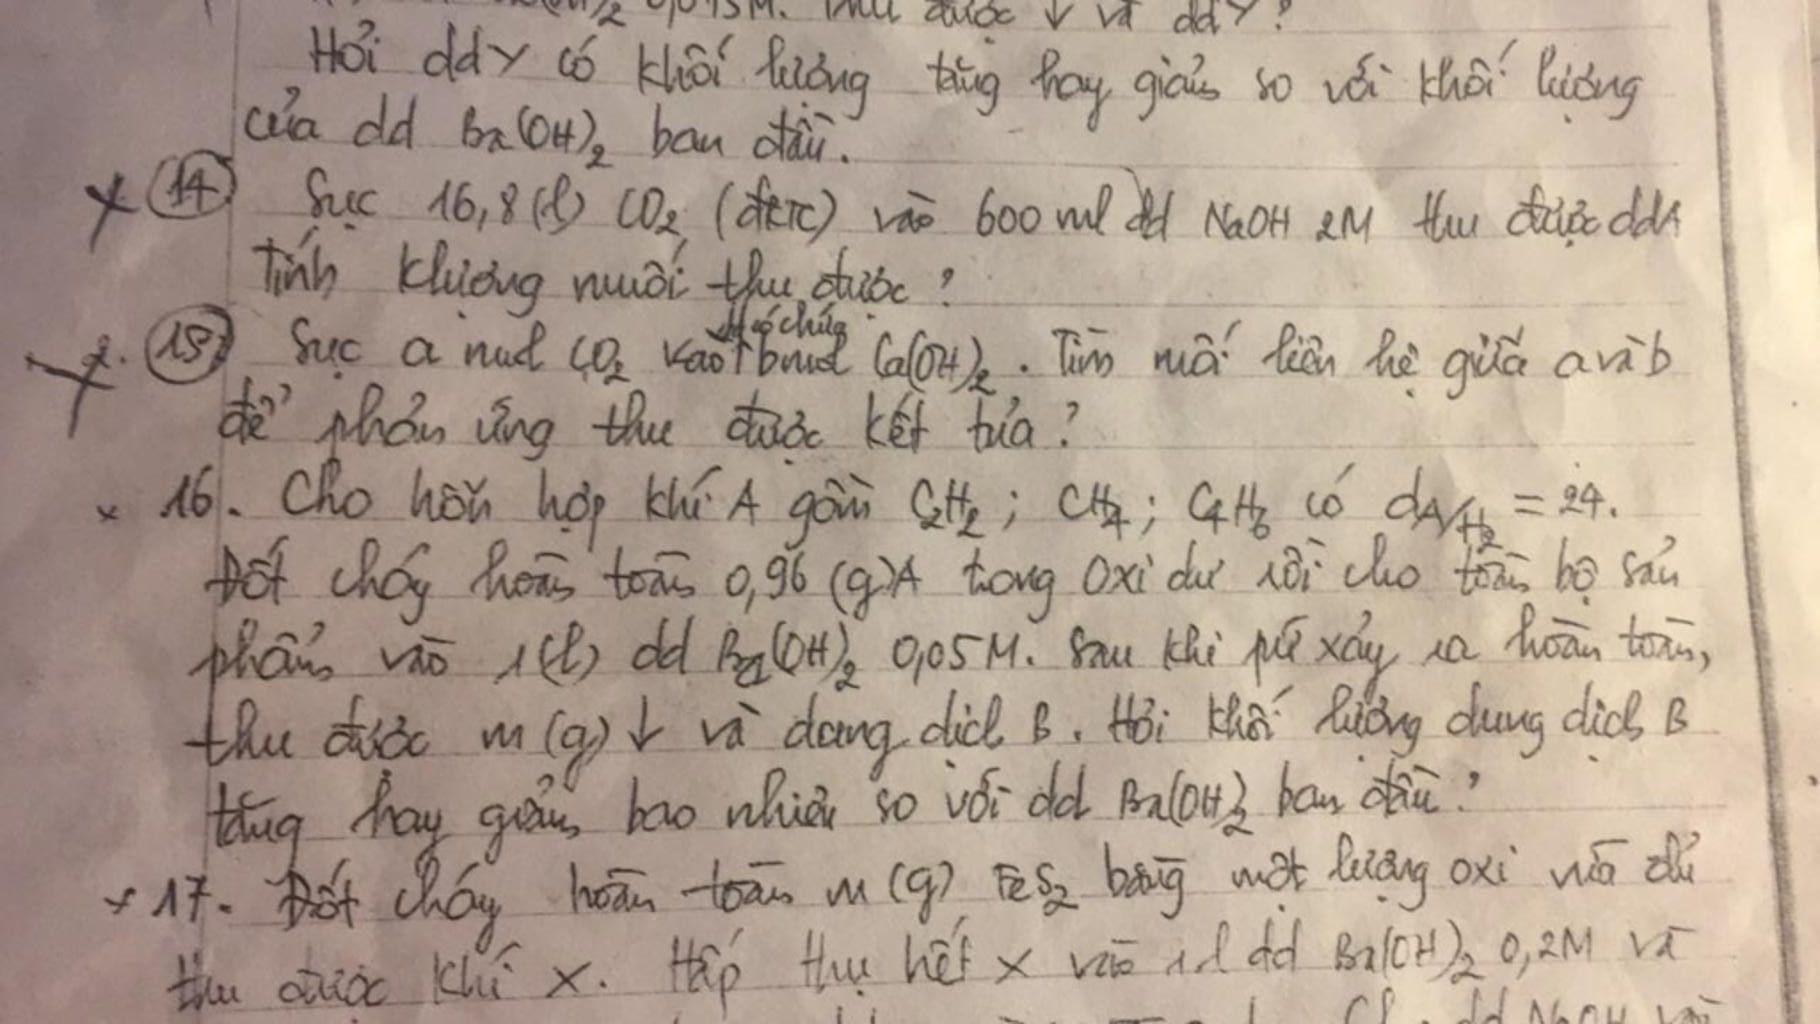 0,045M. Thu được ↓ và ddY?
Hỏi ddY có khối lượng tăng hay giảm so với khối lượng
của dd Ba(OH)₂ ban đầu.
14 Sục 16,8(l) CO₂ (đktc) vào 600 ml dd NaOH 2M thu được ddA
Tính klượng muối thu được?
15 Sục a mol CO₂ vào b mol Ca(OH)₂. Tìm mối liên hệ giữa a và b
để phản ứng thu được kết tủa?
16. Cho hỗn hợp khí A gồm C₂H₂; CH₄; C₄H₆ có dA/H₂ = 24.
Đốt cháy hoàn toàn 0,96 (g)A trong oxi dư rồi cho toàn bộ sản
phẩm vào 1(l) dd Ba(OH)₂ 0,05M. Sau khi pứ xảy ra hoàn toàn,
thu được m(g)↓ và dung dịch B. Hỏi khối lượng dung dịch B
tăng hay giảm bao nhiêu so với dd Ba(OH)₂ ban đầu?
17. Đốt cháy hoàn toàn m(g) FeS₂ bằng một lượng oxi vừa đủ
thu được khí X. Hấp thụ hết X vào 1l dd Ba(OH)₂ 0,2M và
dd NaOH vào